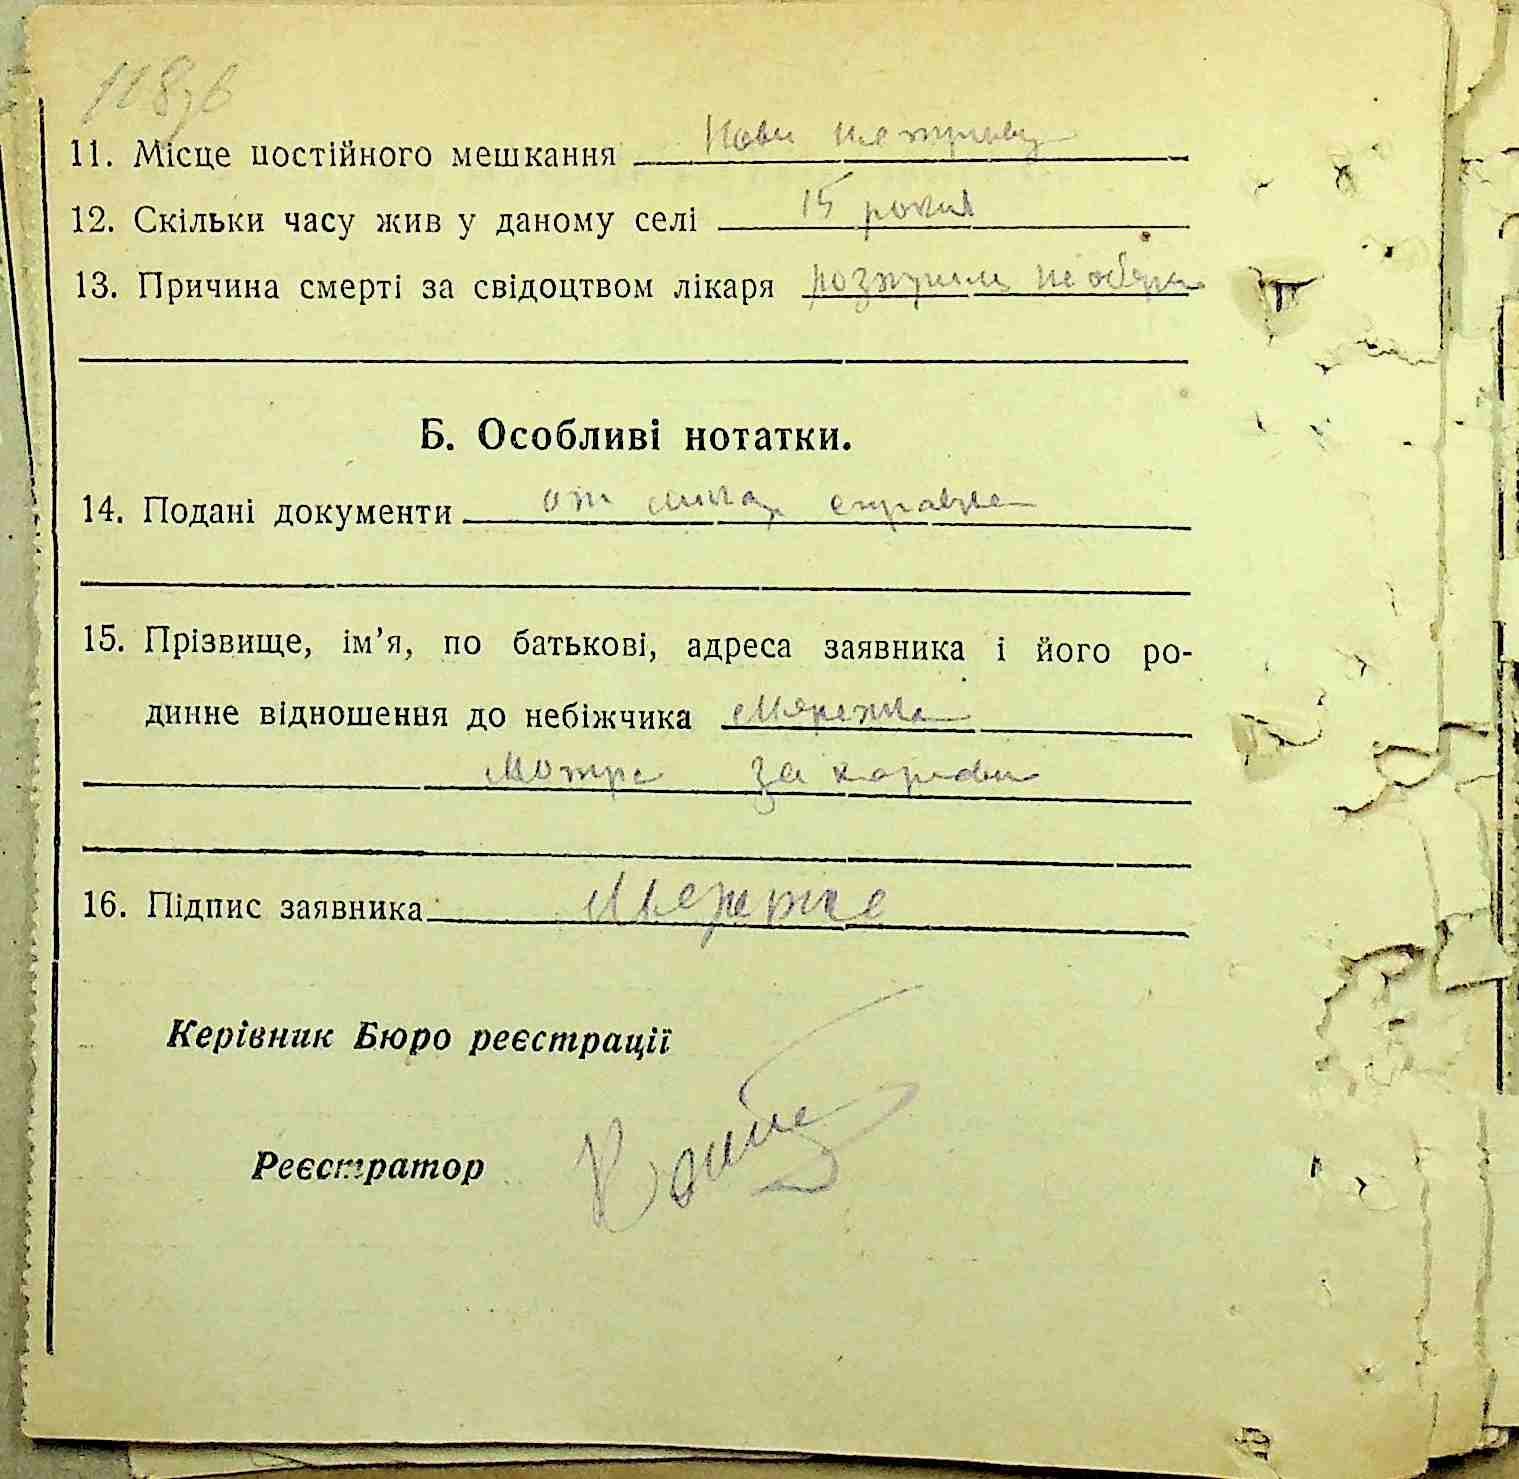 118зв
11. Місце постійного мешкання Нови Петривц
12. Скільки часу жив у даному селі 15 рокив
13. Причина смерті за свідоцтвом лікаря
Б. Особливі нотатки.
14. Подані документи от справка
15. Прізвище, ім'я, по батькові, адреса заявника і його ро-
динне відношення до небіжчика Мережка
Мотря
16. Підпис заявника Мережка
Керівник Бюро реєстрації
Реєстратор